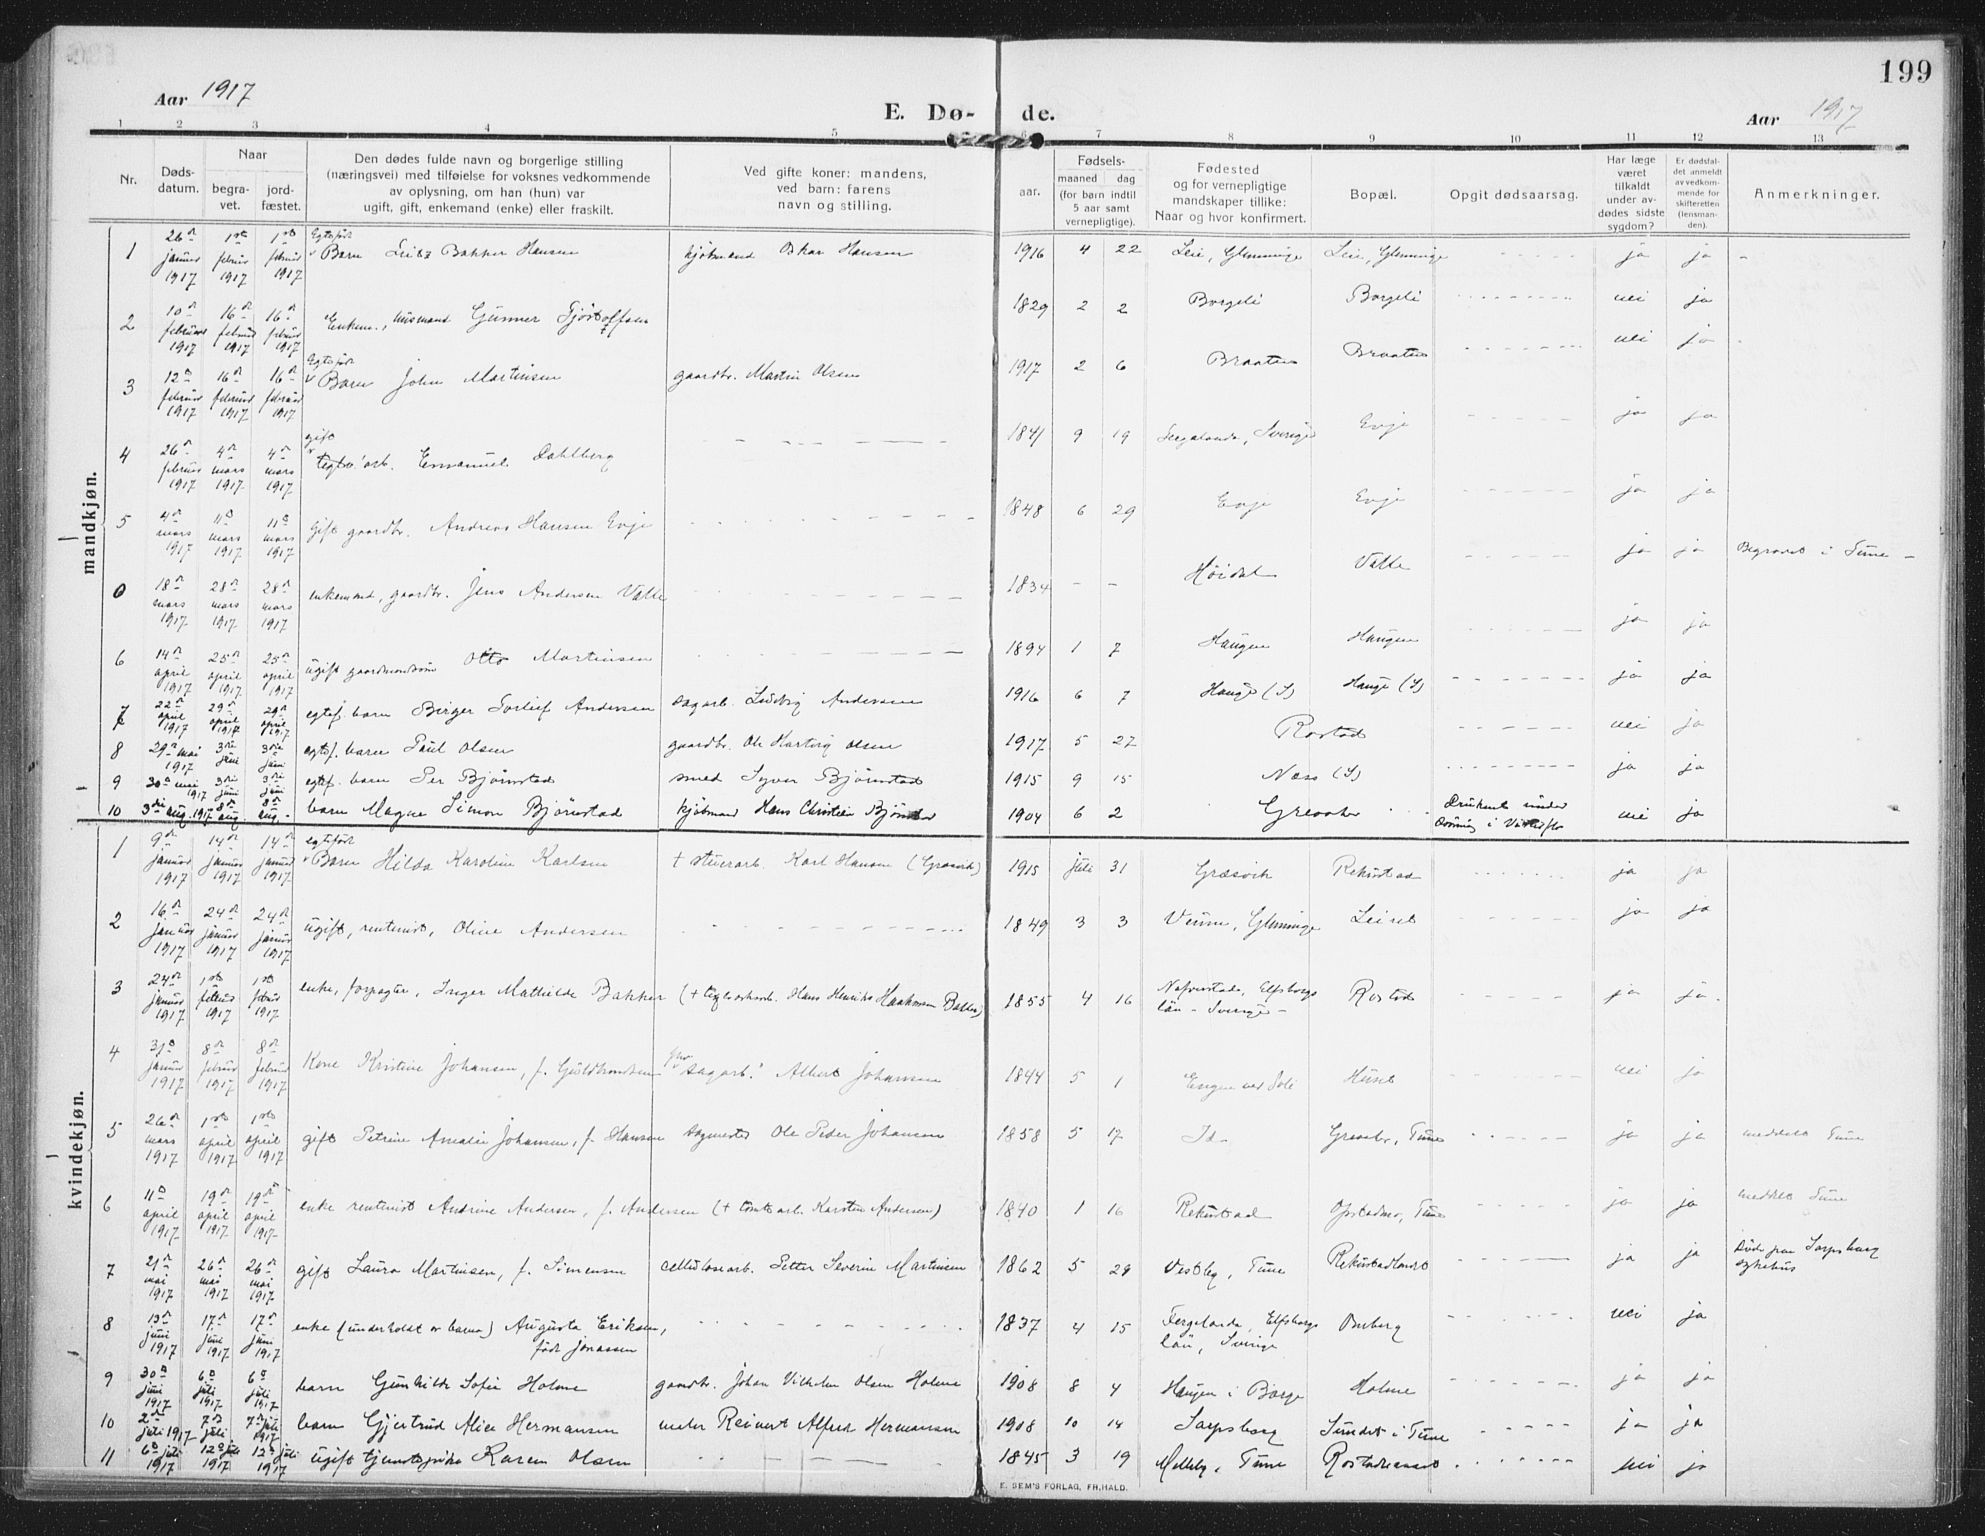 199
Aar 1917
E. Dø- de.
Aar 1917
1 2 3 4 5 6 7 8 9 10 11 12 13
Nr.
Døds-
datum.
Naar
begra-
vet.
jord-
fæstet.
Den dødes fulde navn og borgerlige stilling
(næringsvei) med tilføielse for voksnes vedkommende
av oplysning, om han (hun) var
ugift, gift, enkemand (enke) eller fraskilt.
Ved gifte koner: mandens,
ved barn: farens
navn og stilling.
Fødsels-
aar.
maaned dag
(for børn indtil
5 aar samt
vernepligtige).
Fødested
og for vernepligtige
mandskaper tillike:
Naar og hvor konfirmert.
Bopæl.
Opgit dødsaarsag.
Har læge
været
tilkaldt
under av-
dødes sidste
sygdom?
Er dødsfal-
det anmeldt
av vedkom-
mende for
skifteretten
(lensman-
den).
Anmerkninger.
mandkjøn.
1 26 januar 1917 1ste februar 1917 1ste februar 1917 Egtefødt Barn Bakker Hansen kjøbmand Oskar Hansen 1916 4 22 Leie, Glemminge Leie, Glemminge ja ja
2 10 februar 1917 16 februar 1917 16 februar 1917 Enkem., husmand Gunner 1829 2 2 Borgeli Borgeli nei ja
3 12 februar 1917 16 februar 1917 16 februar 1917 Egtefødt Barn John Martinsen gaardbr. Martin Olsen 1917 2 6 Braaten Braaten nei ja
4 26 februar 1917 4 mars 1917 4 mars 1917 gift arb. Emanuel Dahlberg 1841 9 19 Sverige Evje ja ja
5 4 mars 1917 11 mars 1917 11 mars 1917 Gift gaardbr. Andreas Hansen Evje 1848 6 29 Evje Evje ja ja
0 18 mars 1917 28 mars 1917 28 mars 1917 enkemand, gaardbr. Jens Andersen Valle 1834 - - Høidal Valle ja ja Begravet i Tune
6 14 april 1917 25 april 1917 25 april 1917 ugift gaardmandssøn Otto Martinsen 1894 1 7 Haugen Haugen ja ja
7 22 april 1917 29 april 1917 29 april 1917 egtef. barn Birger Torleif Andersen sagarb. Ludvig Andersen 1916 6 7 Hauge (S) Hauge (S) ja ja
8 29 mai 1917 3die juni 3die juni egtef. barn Paul Olsen gaardbr. Ole Hartvig Olsen 1917 5 27 Rostad nei ja
9 30 mai 1917 3die juni 3die juni egtef. barn Per Bjørnstad smed Syver Bjørnstad 1915 9 15 Næss (S) ja ja
10 3die aug. 1917 8 aug. 8 aug. barn Magne Simon Bjørnstad kjøbmand Hans Christian Bjørnstad 1904 6 2 Greaaker Druknet under nei ja
kvindekjøn.
1 9 januar 1917 14 januar 1917 14 januar 1917 egtefødt Barn Hilda Karoline Karlsen + stuerarb. Karl Hansen (Græsvik) 1915 juli 31 Græsvik Rekustad ja ja
2 16 januar 1917 24 januar 1917 24 januar 1917 ugift, rentenist, Oline Andersen 1849 3 3 Veum, Glemminge Leiret ja ja
3 24 januar 1917 1ste februar 1917 1ste februar 1917 enke, forpagter, Inger Mathilde Bakker (+ teglverksarb. Hans Henriks Haakonsen Bakker) 1855 4 16 Elfsborgs län - Sverige - Rostad ja ja
4 31 januar 1917 8 februar 1917 8 februar 1917 Kone Kristine Johansen, f. Guldbrandsen sagarb. Albert Johansen 1844 5 1 Engen ved Soli Hunst nei ja
5 26 mars 1917 1ste april 1917 1ste april 1917 gift Petrine Amalie Johansen, f. Hansen sagmester Ole Peder Johansen 1858 5 17 Id Greaaker, Tune ja ja meddelt Tune
6 11 april 1917 19 april 1917 19 april 1917 enke rentenist Andrine Andersen, f. Andersen (+ tomtearb. Karsten Andersen) 1840 1 16 Rekustad Opstadmo, Tune ja ja meddelt Tune
7 21 mai 1917 26 mai 1917 26 mai 1917 gift Laura Martinsen, f. Simensen cellulosearb. Petter Severin Martinsen 1862 5 29 Vestby, Tune Rekustadlandet ja ja døde paa Sarpsborg sykehus
8 13 juni 1917 17 juni 1917 17 juni 1917 enke (underholdt av barna) Augusta Eriksen, født Jonassen 1837 4 15 Färgelanda, Elfsborgs län, Sverige Omberg nei ja
9 30 juni 1917 6 juli 1917 6 juli 1917 barn Gunhilda Sofie Holme gaardbr. Johan Vilhelm Olsen Holme 1908 8 4 Haugen i Borge Holme ja ja
10 2 juli 1917 7 juli 7 juli 1917 barn Gjertrud Alice Hermansen murer Reinert Alfred Hermansen 1908 10 14 Sarpsborg Sundet i Tune ja ja
11 6 juli 1917 12 juli 1917 12 juli 1917 ugift tjenestepike Karen Olsen 1845 3 19 Melleby, Tune nei ja
E. SEM'S FORLAG, FR.HALD.